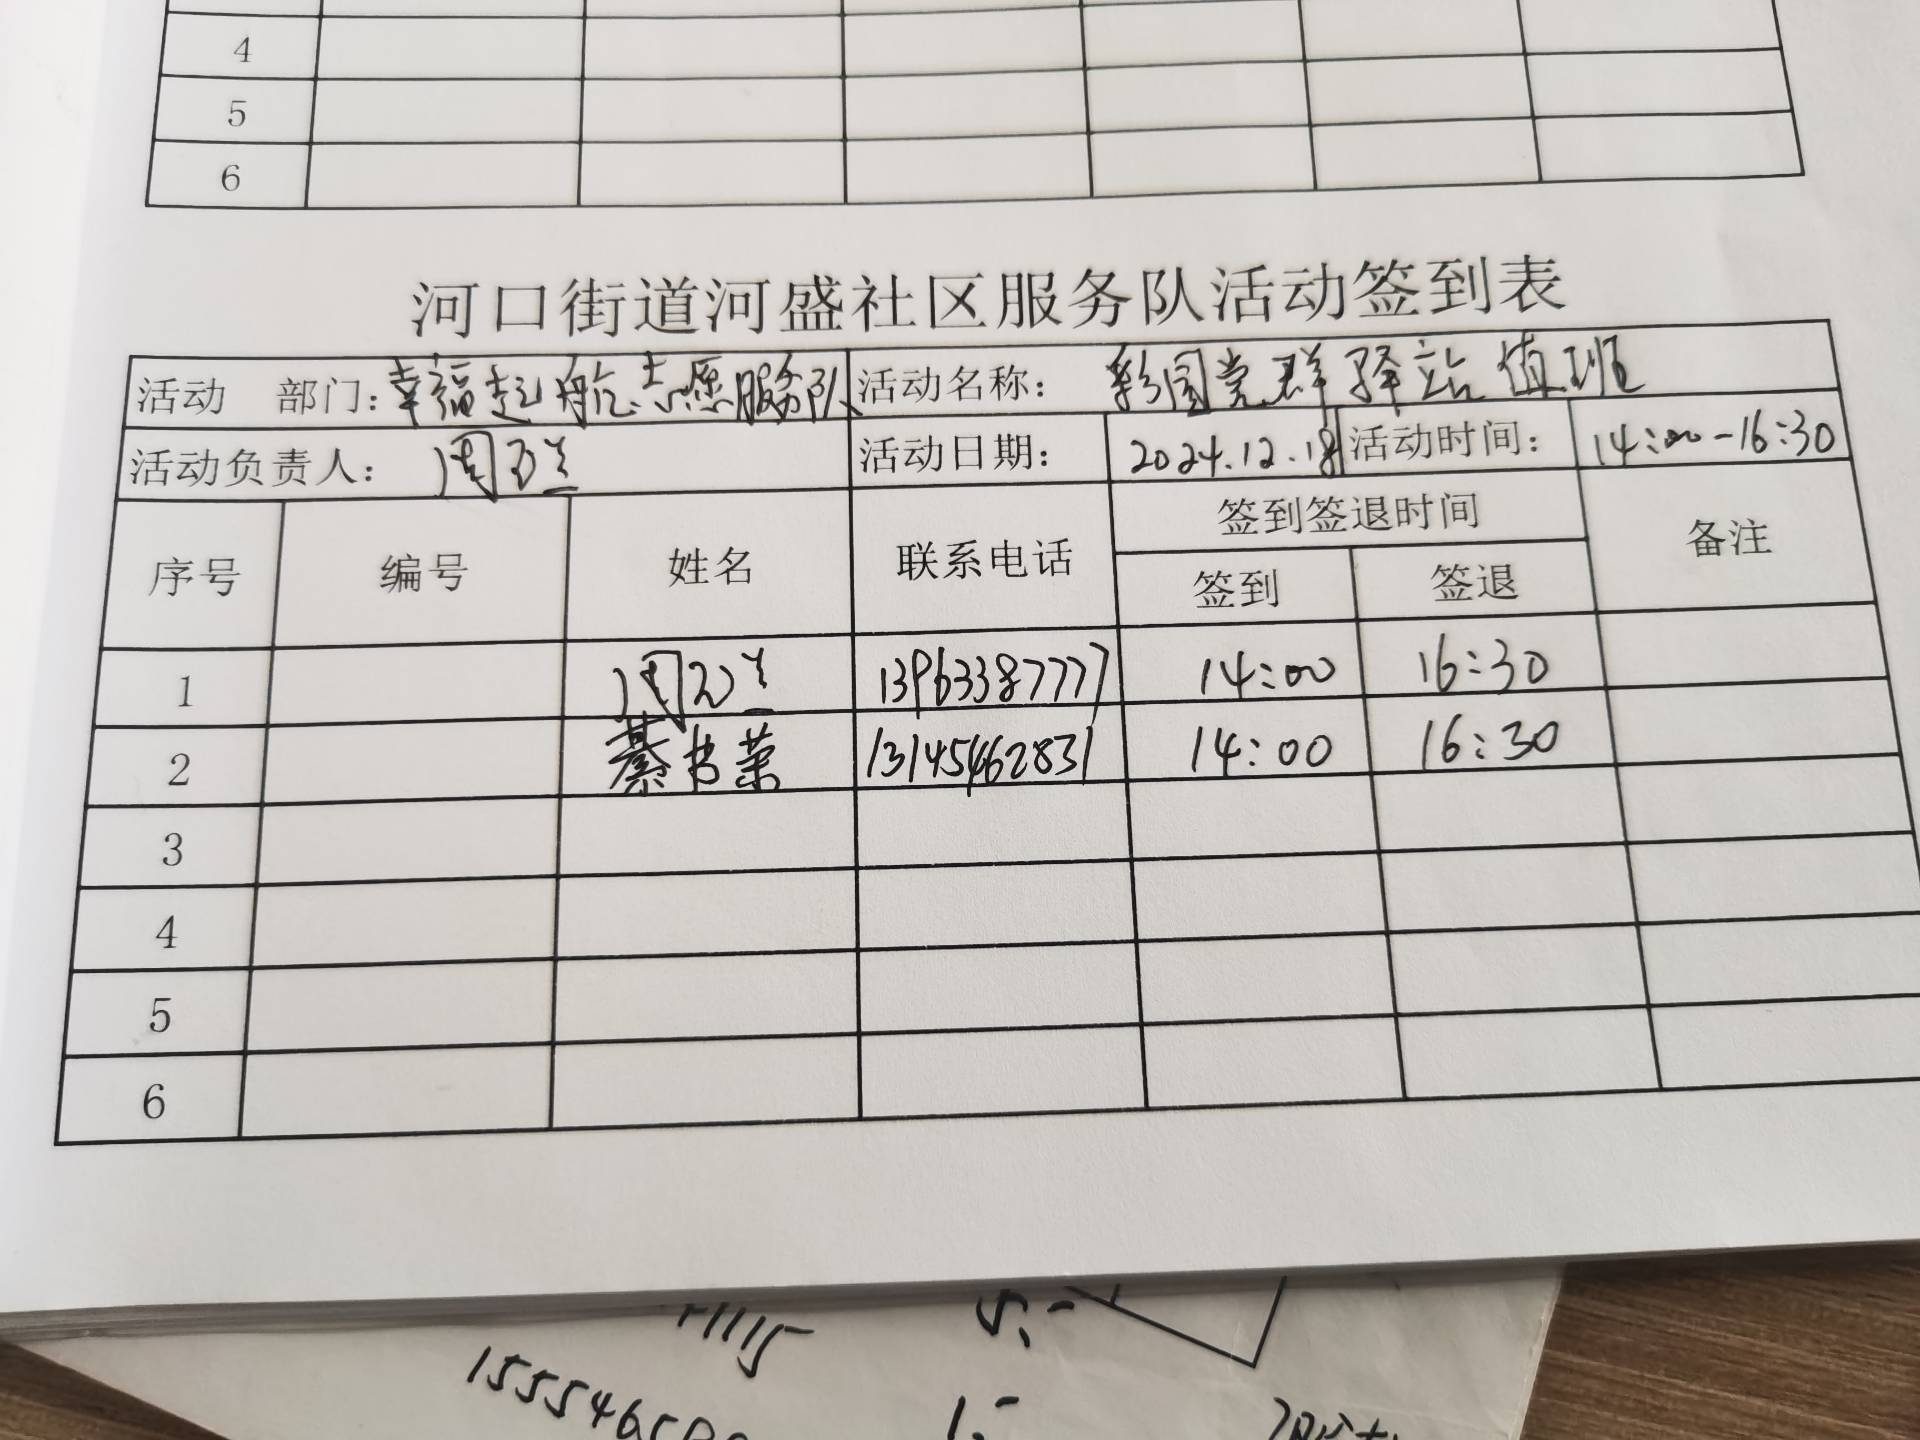 4
5
6
河口街道河盛社区服务队活动签到表
活动 部门：幸福起航志愿服务队 活动名称： 彩园党群驿站值班
活动负责人： 周 活动日期： 2024.12.18 活动时间： 14:00-16:30
序号 编号 姓名 联系电话 签到签退时间 备注
签到 签退
1 周 13963387777 14:00 16:30
2 綦书荣 13145462831 14:00 16:30
3
4
5
6